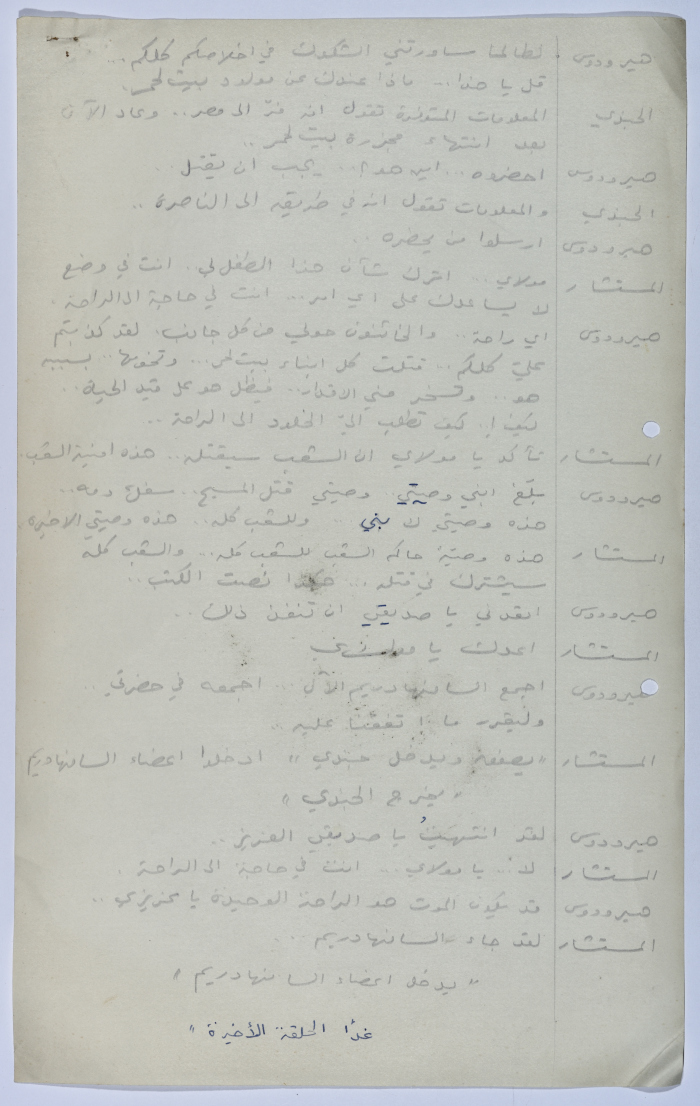 هيرودوس لطالما ساورتني الشكوك في اخلاصكم كلكم ...
قل يا هذا .. ماذا عندك عن مولود بيت لحم
الجندي المعلومات المتوفرة تقول انه فرّ الى مصر .. وعاد الآن
بعد انتهاء مجزرة بيت لحم ..
هيرودوس احضروه ... اين هو؟ .. يجب ان يقتل ..
الجندي والمعلومات تقول انه في طريقه الى الناصرة ..
هيرودوس ارسلوا من يحضره ..
المستشار مولاي .. اترك شأن هذا الطفل لي . انت في وضع
لا يساعدك على اي امر ... انت في حاجة الى الراحة .
هيرودوس اي راحة .. والخائنون حولي من كل جانب . لقد كذبتم
عليّ كلكم .. قتلت كل ابناء بيت لحم ... بسببه
هو .. وتسخر مني الاقدار .. فيظل هو على قيد الحياة ..
كيف ا.. كيف تطلب اليّ الخلود الى الراحة ..
المستشار تأكد يا مولاي ان الشعب سيقتله .. هذه امنية الشعب .
هيرودوس بلّغ ابني وصيتي وصيتي قتل المسيح .. سفك دمه ..
هذه وصيتي لابني .. وللشعب كله .. هذه وصيتي الاخيرة .
المستشار هذه وصية حاكم الشعب للشعب كله ... والشعب كله
سيشترك في قتله ... هكذا نصت الكتب ..
هيرودوس اتعدني يا صديقي ان تنفذ ذلك ..
المستشار اعدك يا مولاي
هيرودوس اجمع السانهادريم الآن ... اجمعه في حضرتي ..
وليقرر ما اتفقنا عليه ..
المستشار " يصفق ويدخل جندي " ادخلوا اعضاء السانهادريم
" يخرج الجندي "
هيرودوس لقد انتهيتُ يا صديقي العزيز ..
المستشار لا .. يا مولاي .. انت في حاجة الى الراحة .
هيرودوس قد يكون الموت هو الراحة الوحيدة يا عزيزي ..
المستشار لقد جاء السانهادريم ..
" يدخل اعضاء السانهادريم "
غدًا الحلقة الأخيرة "